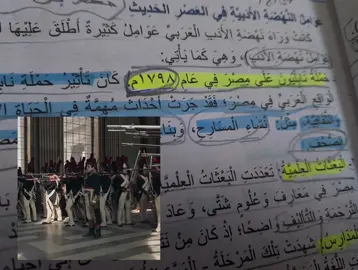 عوامل النهضة الأدبية في العصر الحديث
كانت وراء نهضة الأدب العربي عوامل كثيرة أطلق عليها
النهضة الأدب، وهي كما يأتي:
حملة نابليون على مصر في عام ١٧٩٨م. كان تأثير حملة
الواقع العربي في مصر؛ فقد جرت أحداث مهمة في الحياة
مثل: إنشاء المسارح،
الصحف
البعثات العلمية: تعددت البعثات العلمية
مصر في معارف وعلوم شتى، وعاد
الترجمة والتأليف واضحا؛ إذ كان من
المدارس: شهدت تلك المرحلة